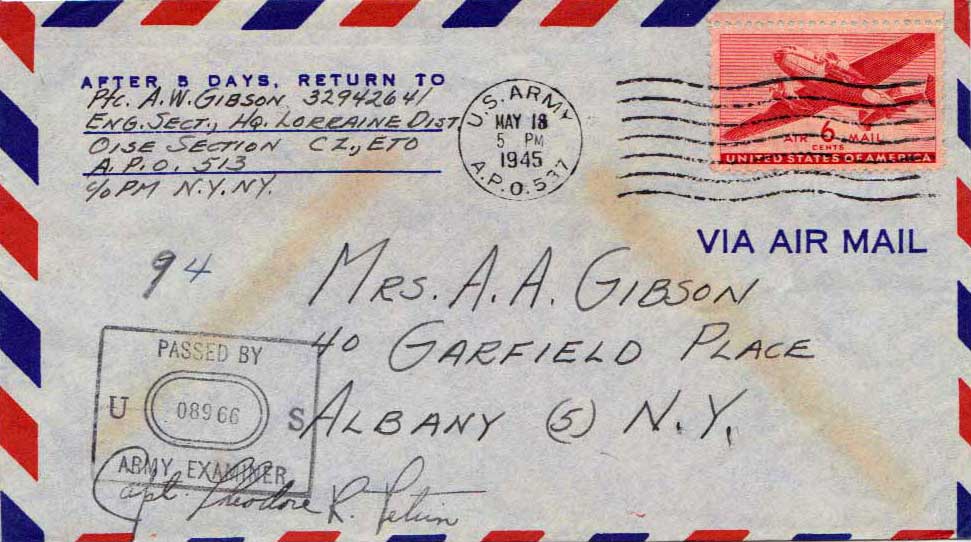 AFTER 5 DAYS, RETURN TO
Pfc. A.W. GIBSON 32942641
ENG. SECT., HQ. LORRAINE DIST
OISE SECTION CZ, ETO
A.P.O. 513
c/o PM N.Y. N.Y.
U.S. ARMY
MAY 18
5 PM
1945
A.P.O. 537
AIR 6 MAIL
CENTS
UNITED STATES OF AMERICA
VIA AIR MAIL
94
MRS. A. A. GIBSON
40 GARFIELD PLACE
ALBANY (5) N.Y.
PASSED BY
U 08966 S
ARMY EXAMINER
Capt. Theodore R.